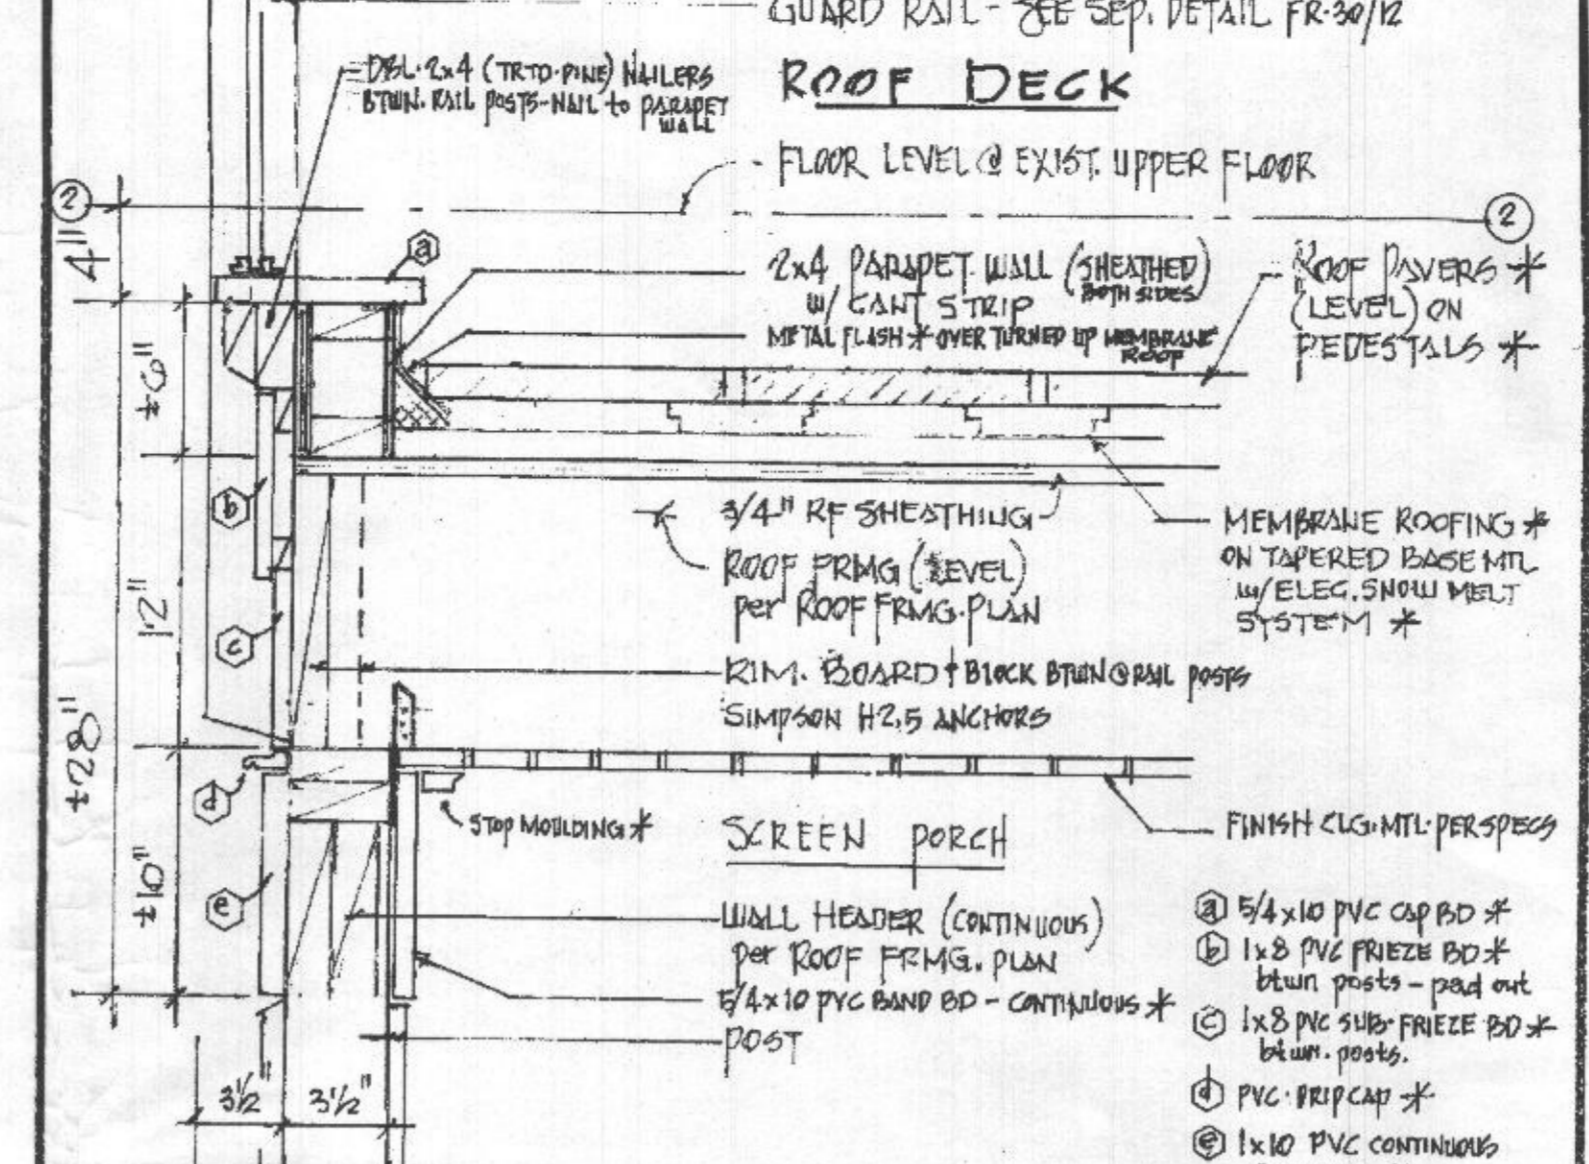 GUARD RAIL - SEE SEP. DETAIL FR-30/12
DBL-2x4 (TRTD-PINE) NAILERS
BTWN. RAIL POSTS-NAIL to PARAPET
WALL
ROOF DECK
FLOOR LEVEL @ EXIST. UPPER FLOOR
2
2
4"
a
2x4 PARAPET WALL (SHEATHED)
BOTH SIDES
w/ CANT STRIP
METAL FLASH * OVER TURNED UP MEMBRANE
ROOF
ROOF PAVERS *
(LEVEL) ON
PEDESTALS *
±6"
b
3/4" RF SHEATHING
ROOF FRMG (LEVEL)
per ROOF FRMG. PLAN
MEMBRANE ROOFING *
ON TAPERED BASE MTL
w/ ELEC. SNOW MELT
SYSTEM *
12"
c
RIM. BOARD + BLOCK BTWN @ RAIL POSTS
SIMPSON H2.5 ANCHORS
±28"
d
STOP MOULDING *
SCREEN PORCH
FINISH CLG. MTL. PER SPECS
±10"
e
WALL HEADER (CONTINUOUS)
per ROOF FRMG. PLAN
5/4x10 PVC BAND BD - CONTINUOUS *
POST
a 5/4x10 PVC CAP BD *
b 1x8 PVC FRIEZE BD *
btwn posts - pad out
c 1x8 PVC SUB-FRIEZE BD *
btwn. posts.
d PVC DRIP CAP *
e 1x10 PVC CONTINUOUS
3½" 3½"